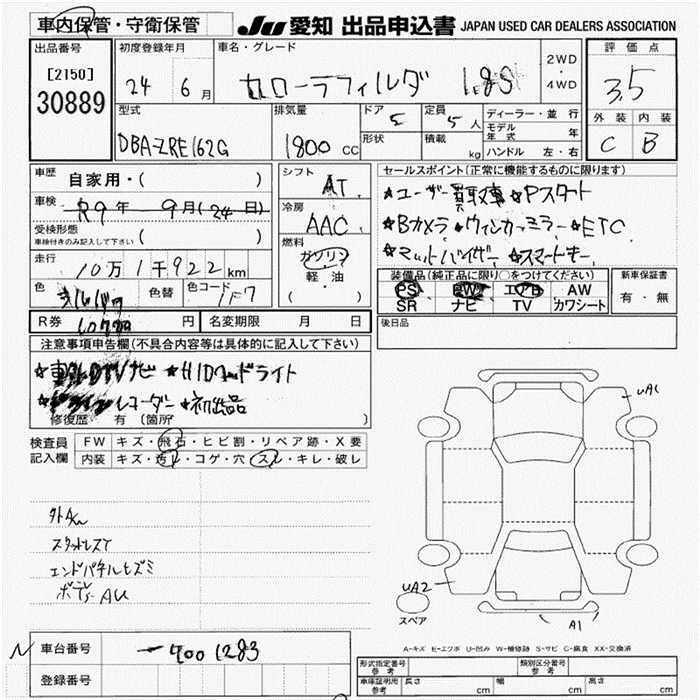 車内保管・守衛保管
JU 愛知 出品申込書 JAPAN USED CAR DEALERS ASSOCIATION
出品番号
[2150]
30889
初度登録年月
24 6月
車名・グレード
カローラフィルダ 1.8S
2WD
・
4WD
評価点
3.5
外装 内装
C B
型式
DBA-ZRE162G
排気量
1800 CC
ドア
5
形状
定員
5人
積載
kg
ディーラー・並行
モデル年式 年
ハンドル 左・右
車歴 自家用・( )
車検 R9年 9月(24日)
受検形態
車検付きのみ記入して下さい ( )
走行 10万1千922km
色 色替 色コード 1F7
シフト
AT
冷房
AAC
燃料
ガソリン
軽・油
( )
セールスポイント(正常に機能するものに限ります)
★ユーザー買取車 ★Pスタート
★Bカメラ ★ウィンカーミラー ★ETC
★マットバイザー ★スマートキー
装備品(純正品に限り○をつけてください)
PS PW エアB AW
SR ナビ TV カワシート
新車保証書
有・無
R券 円 名変期限 月 日
後日品
注意事項申告欄(不具合内容等は具体的に記入して下さい)
★HIDヘッドライト
レコーダー ★初出品
修復歴 有 (箇所 )
検査員
記入欄
FW キズ・飛石・ヒビ割・リペア跡・X要
内装 キズ・汚れ・コゲ・穴・スレ・キレ・破レ
スタッドレスT
エンドパネルヒズミ
ボデーAU
UA1
UA2
A1
スペア
A-キズ E-エクボ U-凹み W-補修跡 S-サビ C-腐食 XX-交換済
N 車台番号 -7001283
登録番号
形式指定番号 参考
類別区分番号 参考
車庫証明用 参考 長さ cm 幅 cm 高さ cm